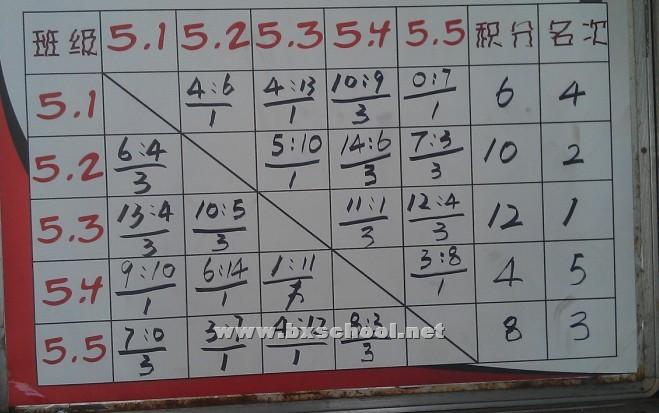 班级 5.1 5.2 5.3 5.4 5.5 积分 名次
5.1 4:6/1 4:13/1 10:9/3 0:7/1 6 4
5.2 6:4/3 5:10/1 14:6/3 7:3/3 10 2
5.3 13:4/3 10:5/3 11:1/3 12:4/3 12 1
5.4 9:10/1 6:14/1 1:11/1 3:8/1 4 5
5.5 7:0/3 3:7/1 4:12/1 8:3/3 8 3
www.bxschool.net